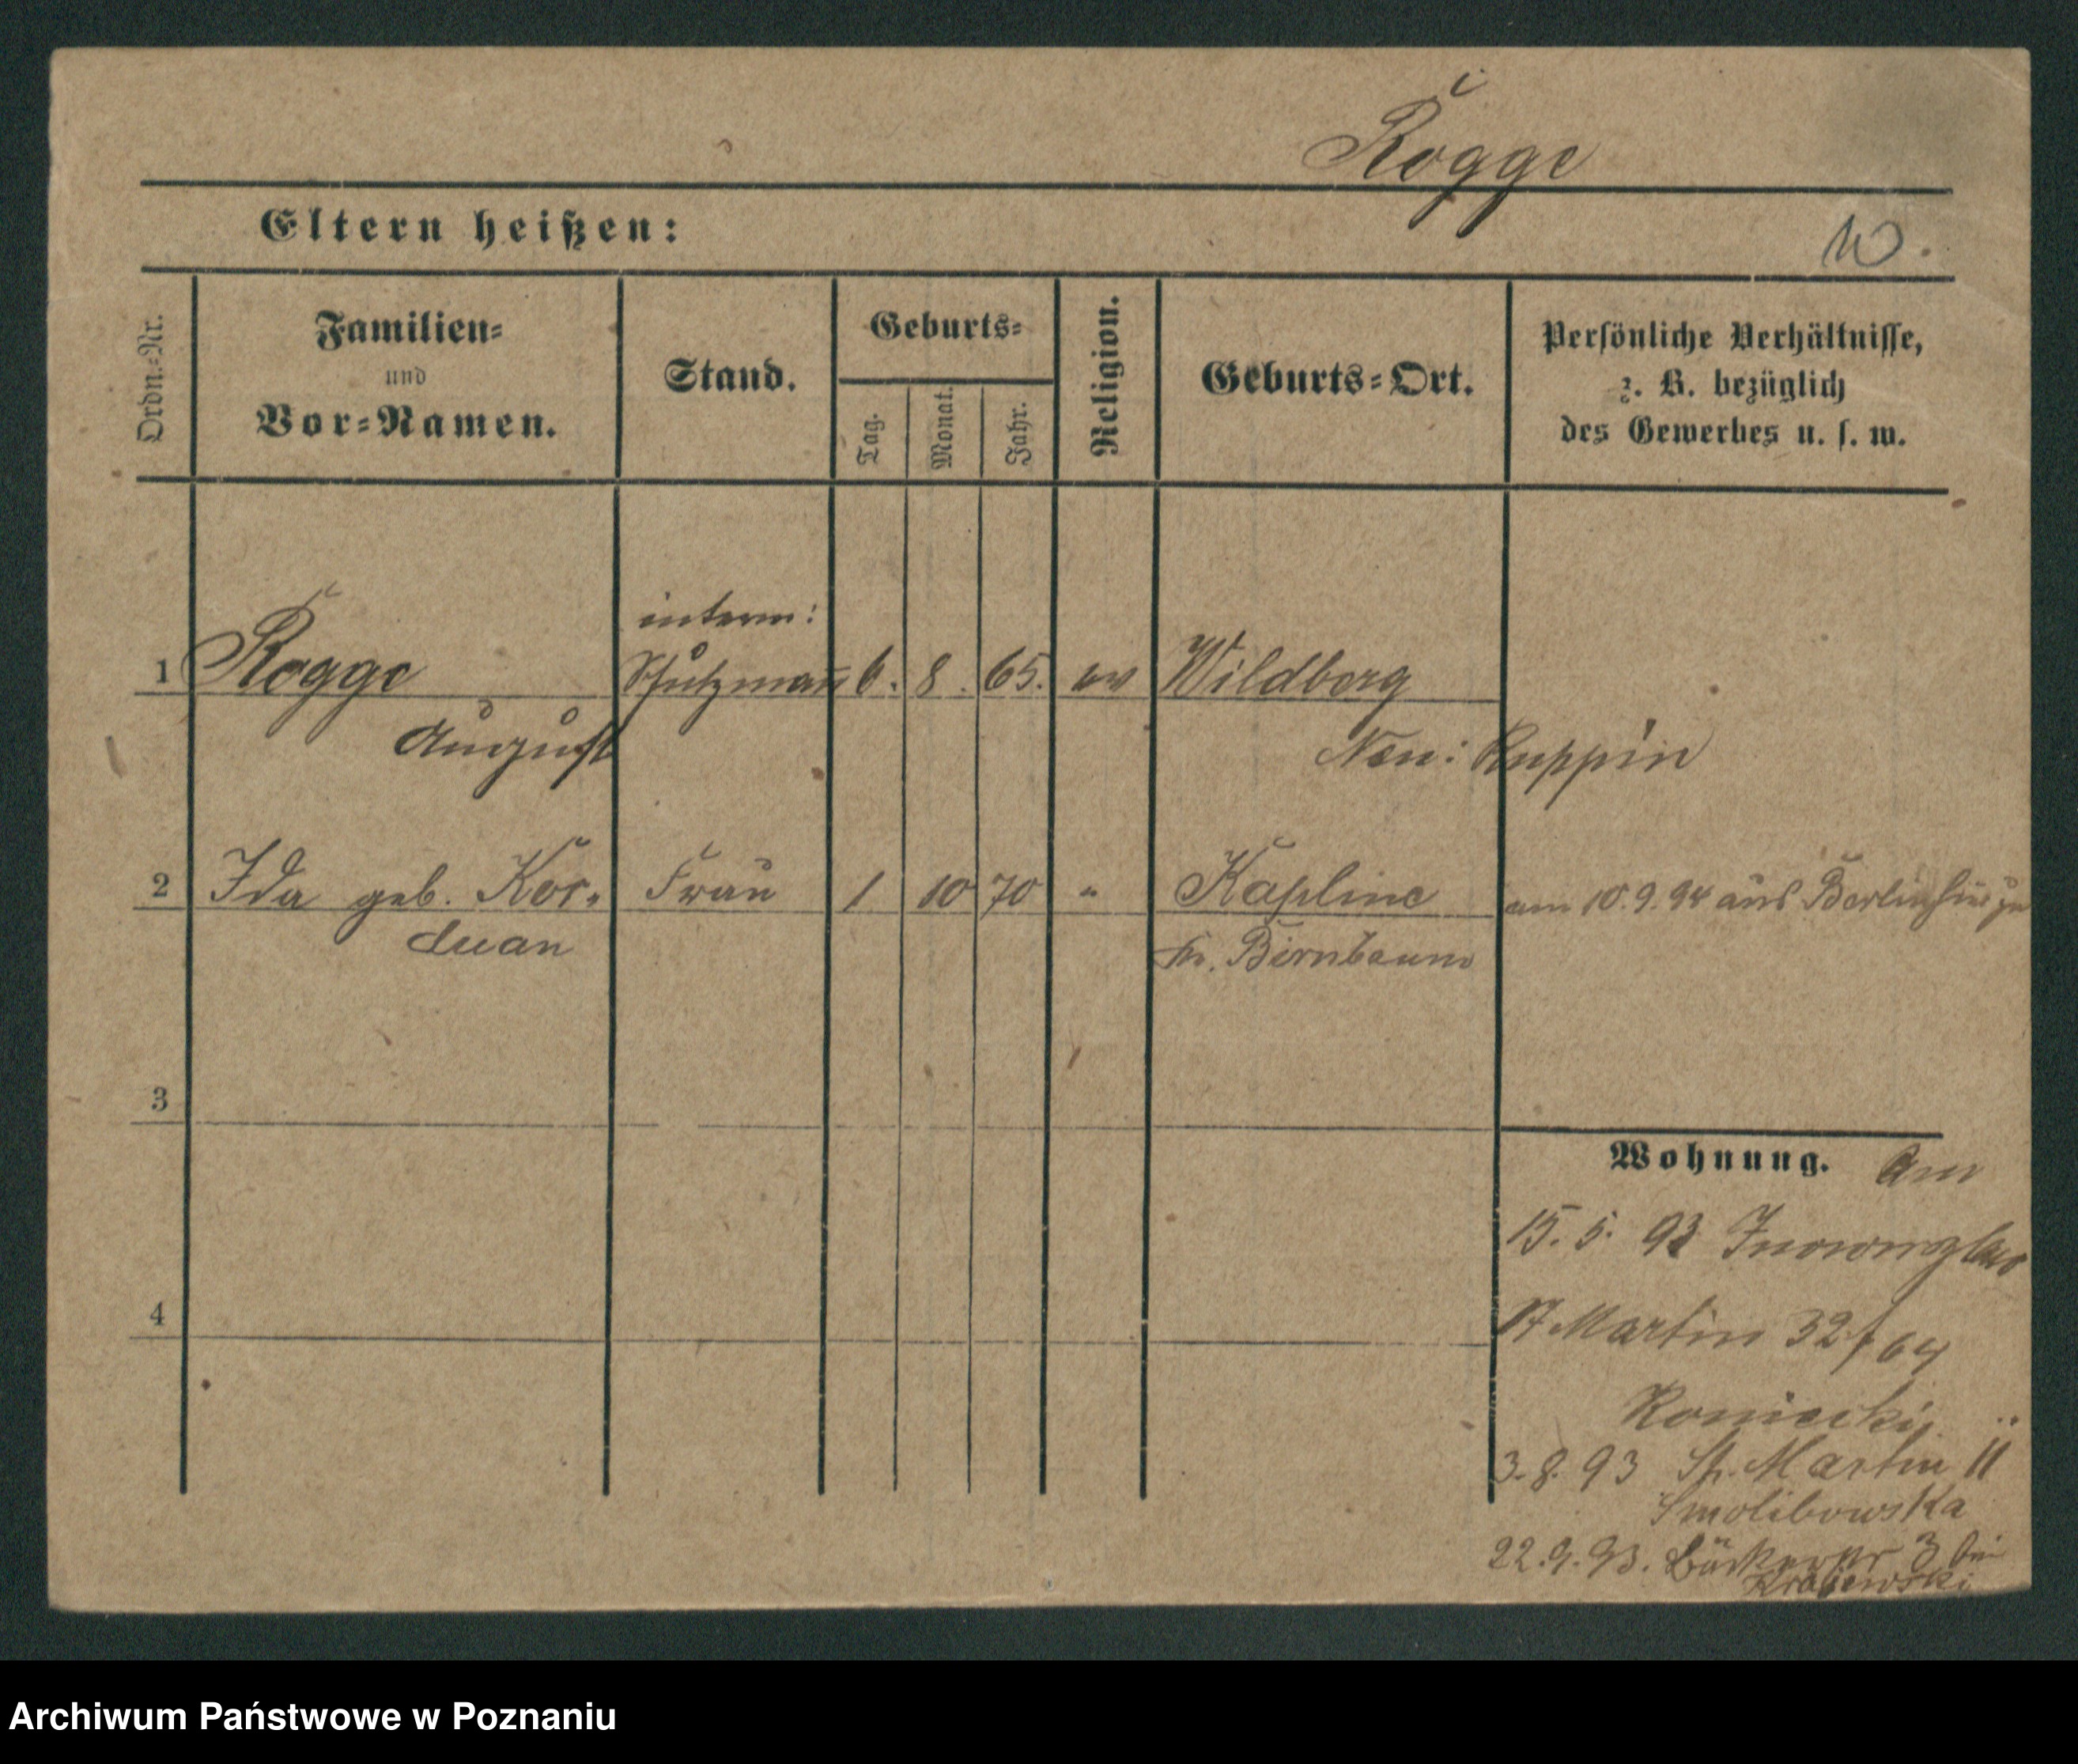 Rogge
Eltern heißen:
W.
Ordn.-Nr.
Familien-
und
Vor-Namen.
Stand.
Geburts-
Tag.
Monat.
Jahr.
Religion.
Geburts-Ort.
Persönliche Verhältnisse,
z. B. bezüglich
des Gewerbes u. s. w.
interm:
1 Rogge Schutzmann 6. 8. 65. ev Wildberg
August Neu: Ruppin
2 Ida geb. Kor- Frau 1 10 70 " Kapline am 10.9.94 aus Berlin hierzu
duan Kr. Birnbaum
3
Wohnung. Am
15. 5. 93 Inowrazlaw
4
St Martin 32/64
Koniecki
3.8.93 St. Martin 11
Smolibowska
22.9.93. Bäckerstr 3 bei
Krajewski
Archiwum Państwowe w Poznaniu